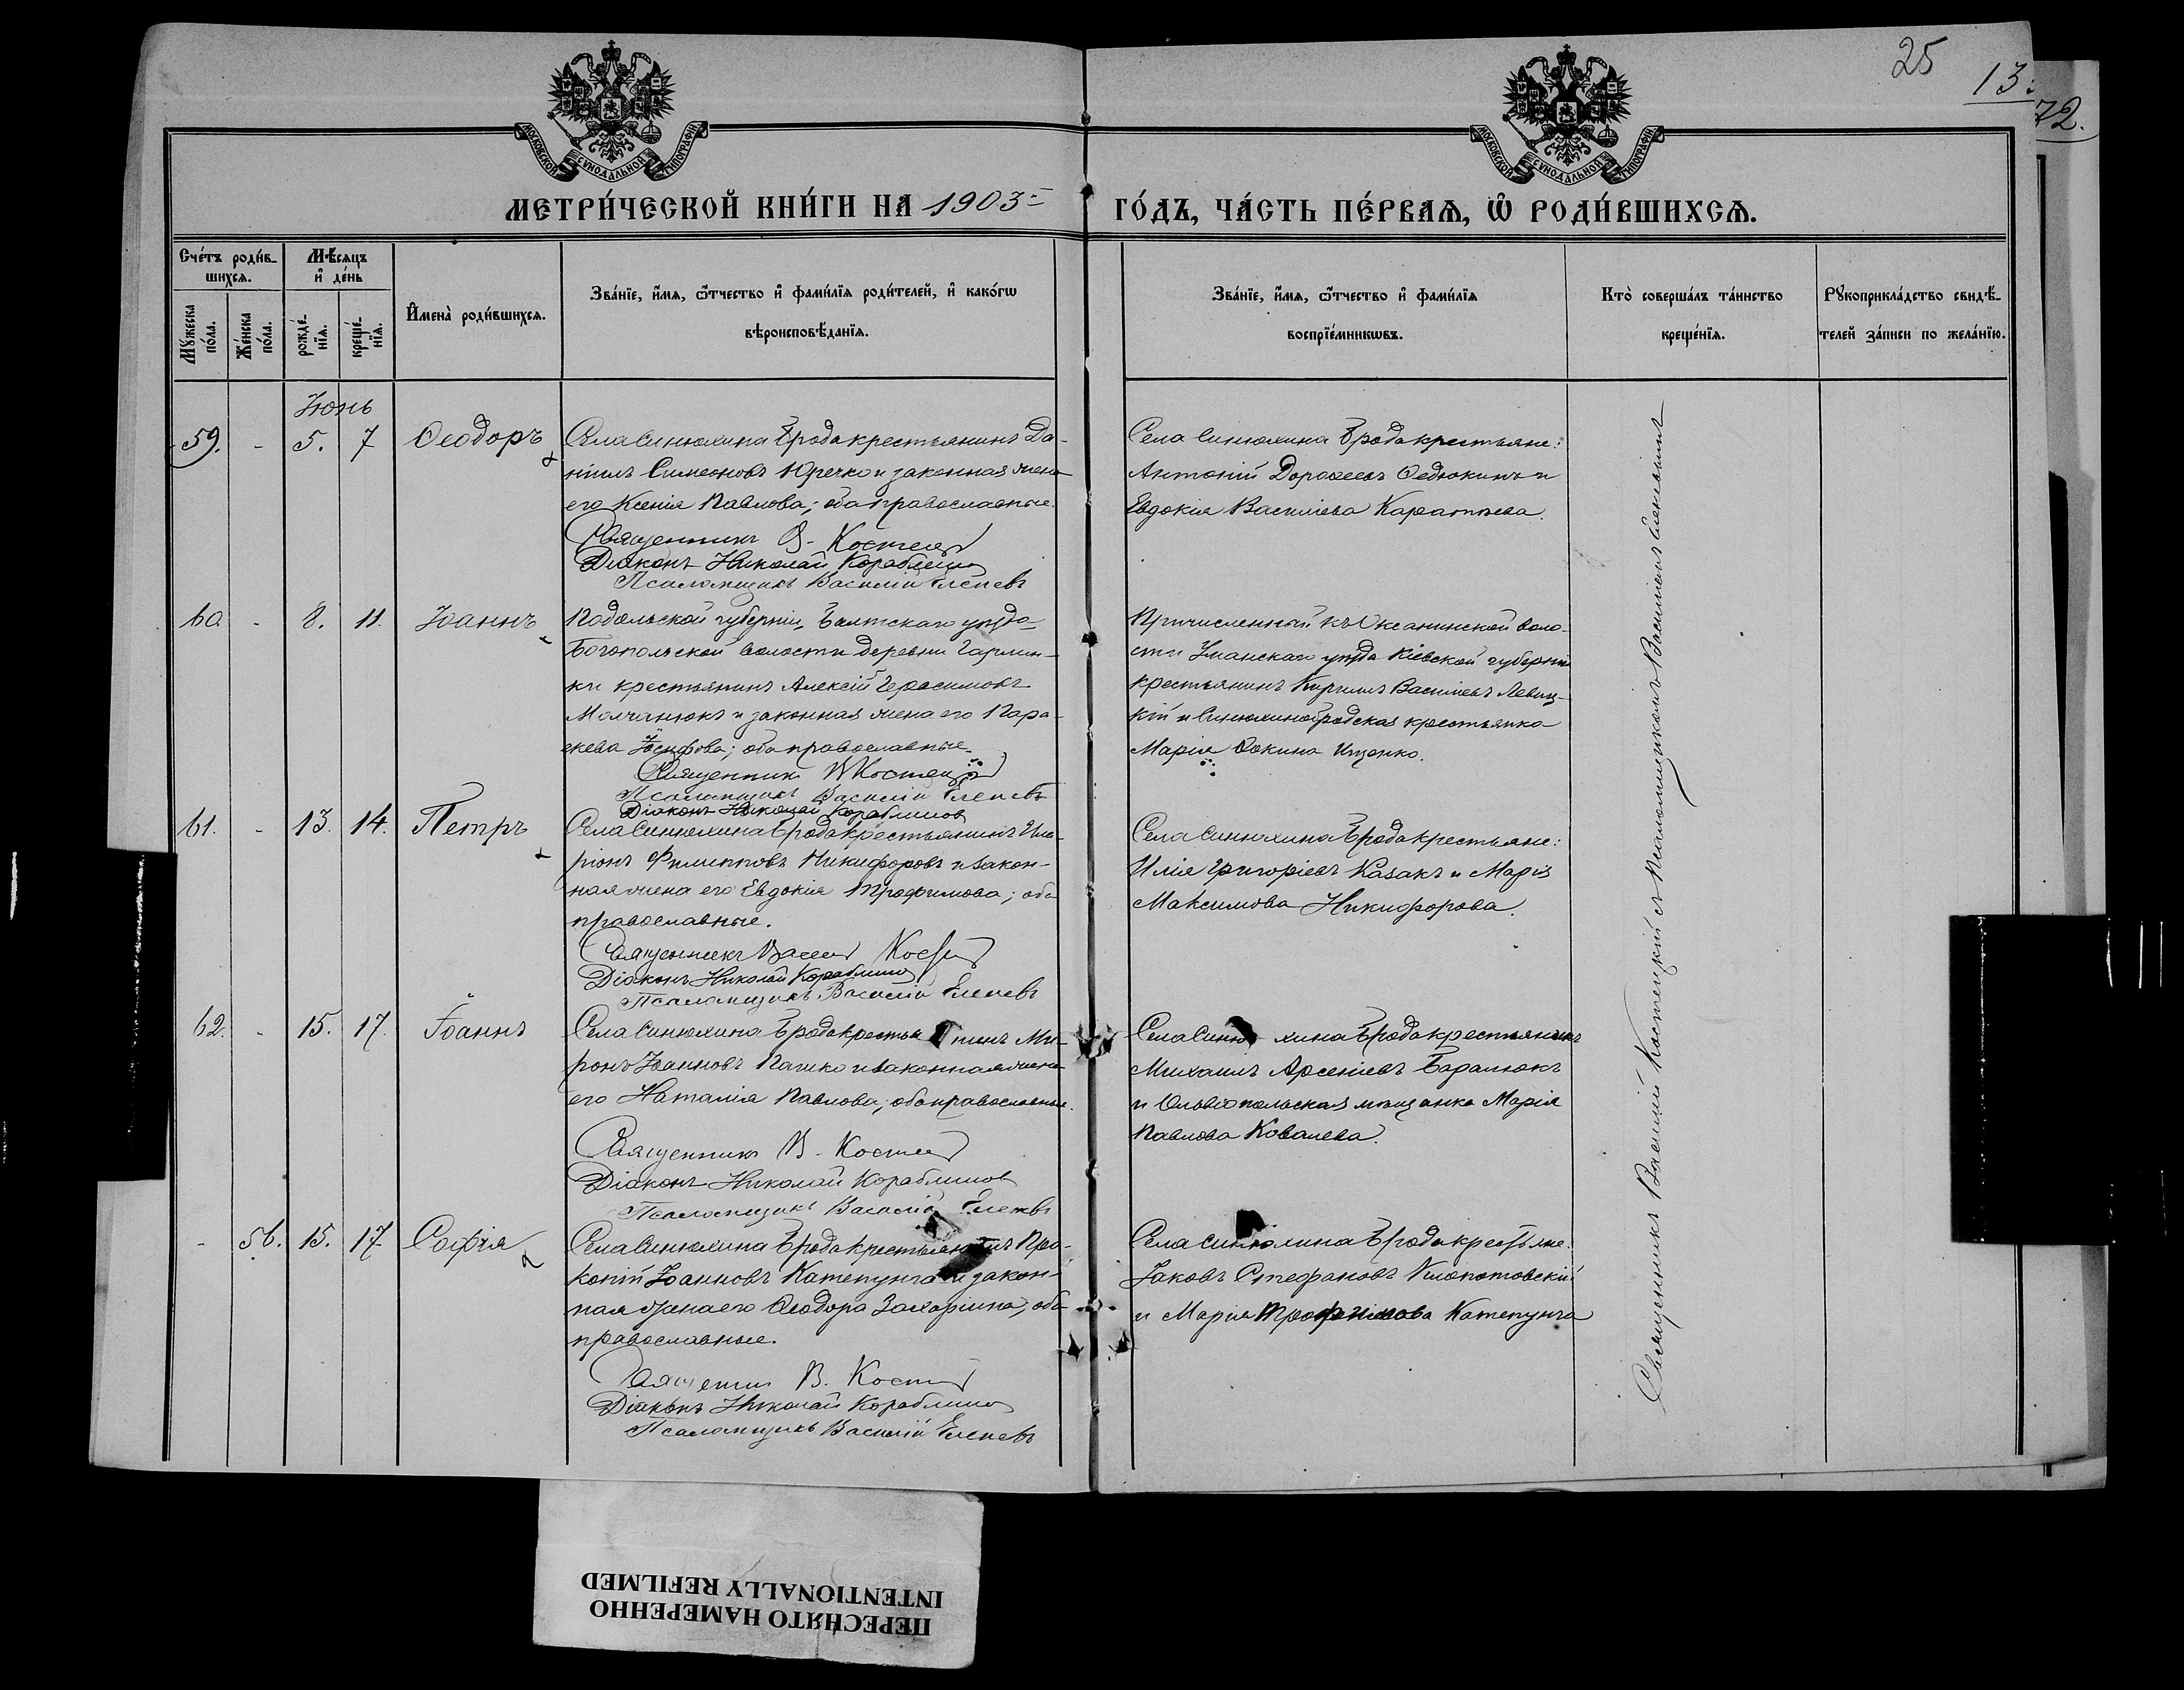 25
13.
72.
МОСКОВСКОЙ СУНОДАЛЬНОЙ ТИПОГРАФІИ
МОСКОВСКОЙ СУНОДАЛЬНОЙ ТИПОГРАФІИ
МЕТРИ́ЧЕСКОЙ КНИ́ГИ НА 1903
ГО́ДЪ, ЧА́СТЬ ПЕ́РВАѦ, Ѡ РОДИ́ВШИХСѦ.
Сче́тъ роди́в-
шихсѧ.
Мѣ́сяцъ
и де́нь
Мꙋ́жеска
по́ла.
Же́нска
по́ла.
рожде́-
нїѧ.
креще́-
нїѧ.
Имена̀ роди́вшихсѧ.
Зва́нїе, и́мѧ, ѻ́тчество и фами́лїѧ роди́телей, и како́гѡ
вѣроисповѣ́данїѧ.
Зва́нїе, и́мѧ, ѻ́тчество и фами́лїѧ
воспрїе́мникѡвъ.
Кто̀ соверша́лъ та́инство
креще́нїѧ.
Рꙋкоприкла́дство свидѣ́-
телей за́писи по жела́нїю.
Іюнь
59. - 5. 7 Ѳеодоръ
Села Синюхина Брода крестьянинъ Да-
ніилъ Симеоновъ Юречко и законная жена
его Ксенія Павлова; оба православные.
Священникъ В. Костец
Діаконъ Николай Кораблинов
Псаломщикъ Василій Елепевъ
Села Синюхина Брода крестьяне:
Антоній Дороѳеевъ Ѳедюкинъ и
Евдокія Василіева Каратѣева.
60 - 8. 11. Іоаннъ
Подольской губерніи, Балтскаго уѣзда
Богопольской волости деревни Гармин-
ки крестьянинъ Алексій Герасимовъ
Молчанюкъ и законная жена его Пара-
скева Іосифова; оба православные.
Священникъ В Костец
Псаломщикъ Василій Елепевъ
Діаконъ Николай Кораблинов
Причисленный къ Оксанинской воло-
сти Уманскаго уѣзда Кіевской губерніи
крестьянинъ Кириллъ Василіевъ Левиц-
кій и Синюхинобродская крестьянка
Марія Ѳокина Ищенко.
61. - 13. 14. Петръ
Села Синюхина Брода крестьянинъ Ила-
ріонъ Филипповъ Никифоровъ и закон-
ная жена его Евдокія Трофимова; оба
православные.
Священникъ Васил Костец
Діаконъ Николай Кораблинов
Псаломщикъ Василій Елепевъ
Села Синюхина Брода крестьяне:
Илія Григоріевъ Казакъ и Марія
Максимова Никифорова.
62. - 15. 17. Іоаннъ
Села Синюхина Брода крестьянинъ Ми-
ронъ Іоанновъ Пашко и законная жена
его Наталія Павлова; оба православные.
Священникъ В. Костец
Діаконъ Николай Кораблинов
Псаломщикъ Василій Елепевъ
Села Синюхина Брода крестьянинъ
Михаилъ Арсеніевъ Баранюкъ
и Ольвіопольская мѣщанка Марія
Павлова Ковалева.
- 56. 15. 17 Софія
Села Синюхина Брода крестьянинъ Про-
копій Іоанновъ Катепунга и закон-
ная жена его Ѳеодора Захаріина; оба
православные.
Священник В. Костец
Діаконъ Николай Кораблинов
Псаломщикъ Василій Елепевъ
Села Синюхина Брода крестьяне:
Іаковъ Стефановъ Клопотовскій
и Марія Трофимова Катепунга
Священникъ Василій Костецкій съ Псаломщикомъ Василіемъ
ПЕРЕСНЯТО НАМЕРЕННО
INTENTIONALLY REFILMED